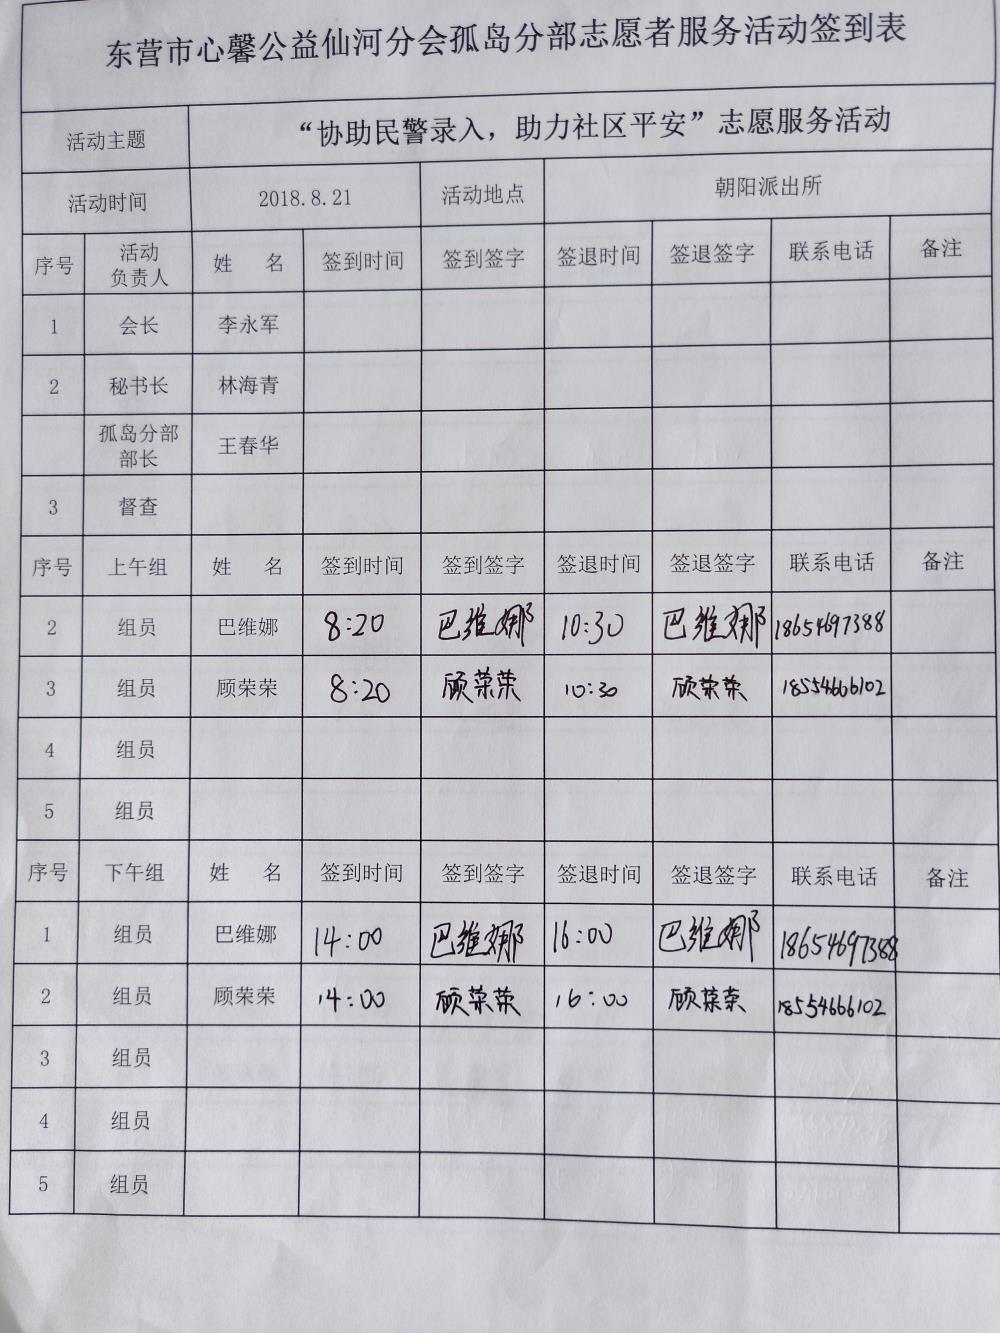 东营市心馨公益仙河分会孤岛分部志愿者服务活动签到表
活动主题 “协助民警录入，助力社区平安”志愿服务活动
活动时间 2018.8.21 活动地点 朝阳派出所
序号 活动负责人 姓 名 签到时间 签到签字 签退时间 签退签字 联系电话 备注
1 会长 李永军
2 秘书长 林海青
孤岛分部部长 王春华
3 督查
序号 上午组 姓 名 签到时间 签到签字 签退时间 签退签字 联系电话 备注
2 组员 巴维娜 8:20 巴维娜 10:30 巴维娜 18654697388
3 组员 顾荣荣 8:20 顾荣荣 10:30 顾荣荣 18554666102
4 组员
5 组员
序号 下午组 姓 名 签到时间 签到签字 签退时间 签退签字 联系电话 备注
1 组员 巴维娜 14:00 巴维娜 16:00 巴维娜 18654697388
2 组员 顾荣荣 14:00 顾荣荣 16:00 顾荣荣 18554666102
3 组员
4 组员
5 组员